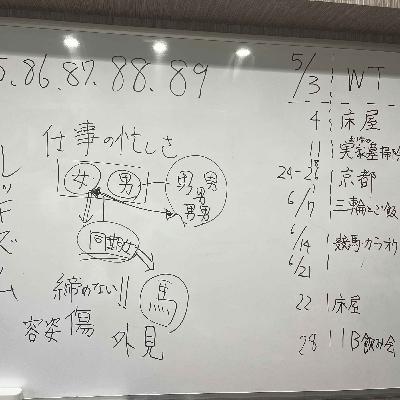 5.86.87.88.89
仕事の忙しさ
女 男 男男
男
男男
同期女
馬
諦めない!!
容姿 傷 外見
ルッキズム
5/3 WT
4 床屋
11 実家墓掃除
24-26 京都
6/7 三輪とご飯
6/14 競馬・カラオケ
6/21
22 床屋
28 B飲み会